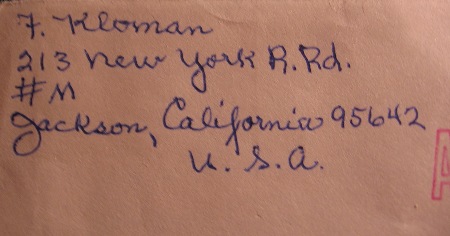 F. Kloman
213 New York R. Rd.
#M
Jackson, California 95642
U. S. A.